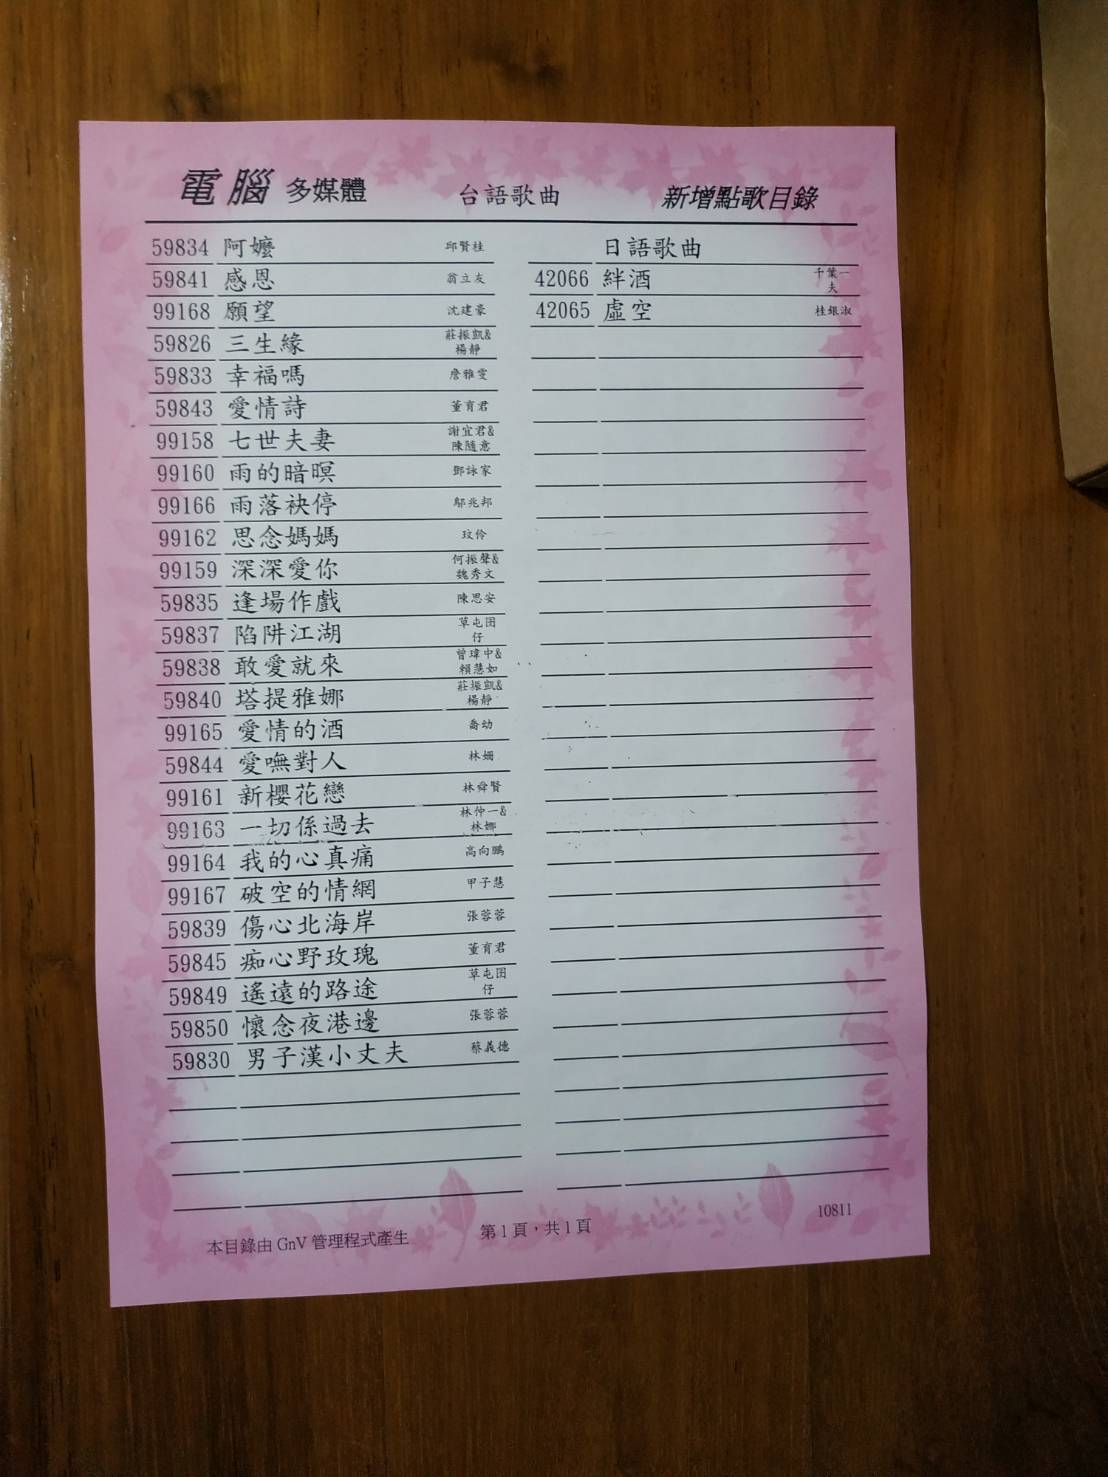 電腦 多媒體 台語歌曲 新增點歌目錄
59834 阿嬤 邱賢桂
59841 感恩 翁立友
99168 願望 沈建豪
59826 三生緣 莊振凱&楊靜
59833 幸福嗎 詹雅雯
59843 愛情詩 董育君
99158 七世夫妻 謝宜君&陳隨意
99160 雨的暗暝 鄧詠家
99166 雨落袂停 鄔兆邦
99162 思念媽媽 玟伶
99159 深深愛你 何振聲&魏秀文
59835 逢場作戲 陳思安
59837 陷阱江湖 草屯囝仔
59838 敢愛就來 曾瑋中&賴慧如
59840 塔提雅娜 莊振凱&楊靜
99165 愛情的酒 喬幼
59844 愛嘸對人 林姍
99161 新櫻花戀 林舜賢
99163 一切係過去 林仲一&林娜
99164 我的心真痛 高向鵬
99167 破空的情網 甲子慧
59839 傷心北海岸 張蓉蓉
59845 痴心野玫瑰 董育君
59849 遙遠的路途 草屯囝仔
59850 懷念夜港邊 張蓉蓉
59830 男子漢小丈夫 蔡義德
日語歌曲
42066 絆酒 千葉一夫
42065 虛空 桂銀淑
本目錄由 GnV 管理程式產生 第 1 頁，共 1 頁 10811